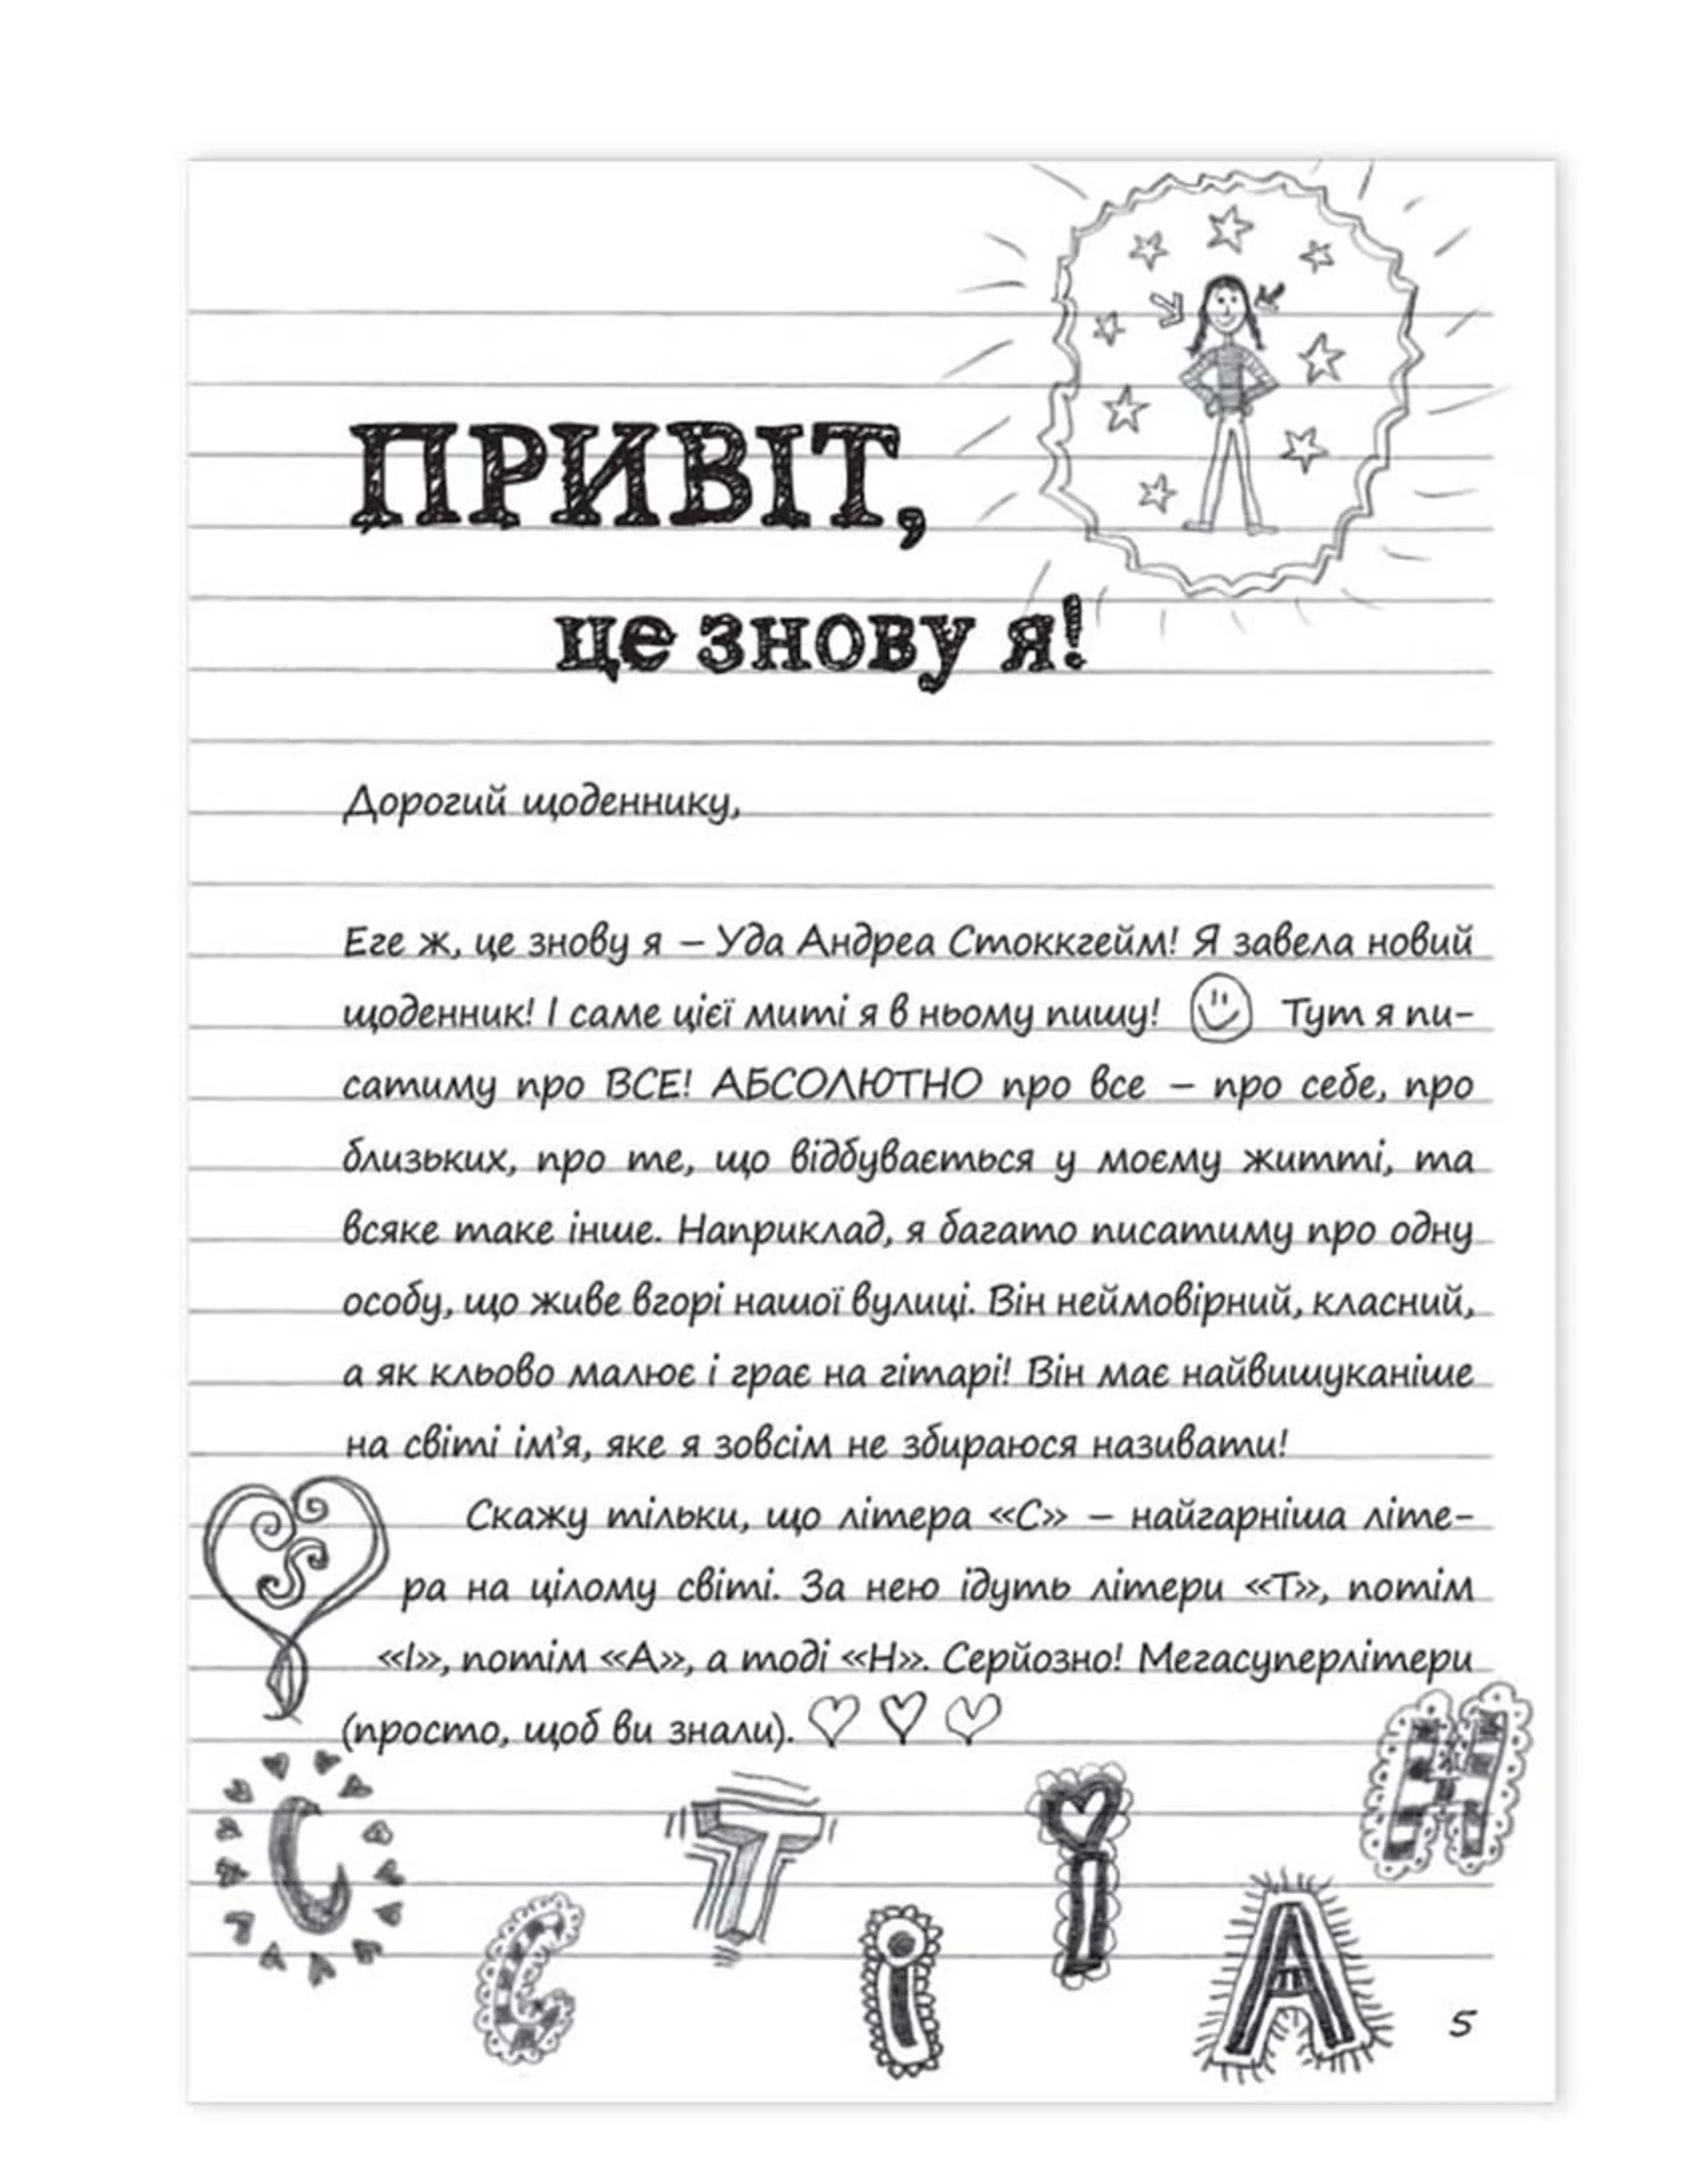 ПРИВІТ,
це знову я!
Дорогий щоденнику,
Еге ж, це знову я – Уда Андреа Стоккгейм! Я завела новий
щоденник! І саме цієї миті я в ньому пишу! Тут я пи-
сатиму про ВСЕ! АБСОЛЮТНО про все – про себе, про
близьких, про те, що відбувається у моєму житті, та
всяке таке інше. Наприклад, я багато писатиму про одну
особу, що живе вгорі нашої вулиці. Він неймовірний, класний,
а як кльово малює і грає на гітарі! Він має найвишуканіше
на світі ім'я, яке я зовсім не збираюся називати!
Скажу тільки, що літера «С» – найгарніша літе-
ра на цілому світі. За нею ідуть літери «Т», потім
«І», потім «А», а тоді «Н». Серйозно! Мегасуперлітери
(просто, щоб ви знали).
С С Т і І А Н
5